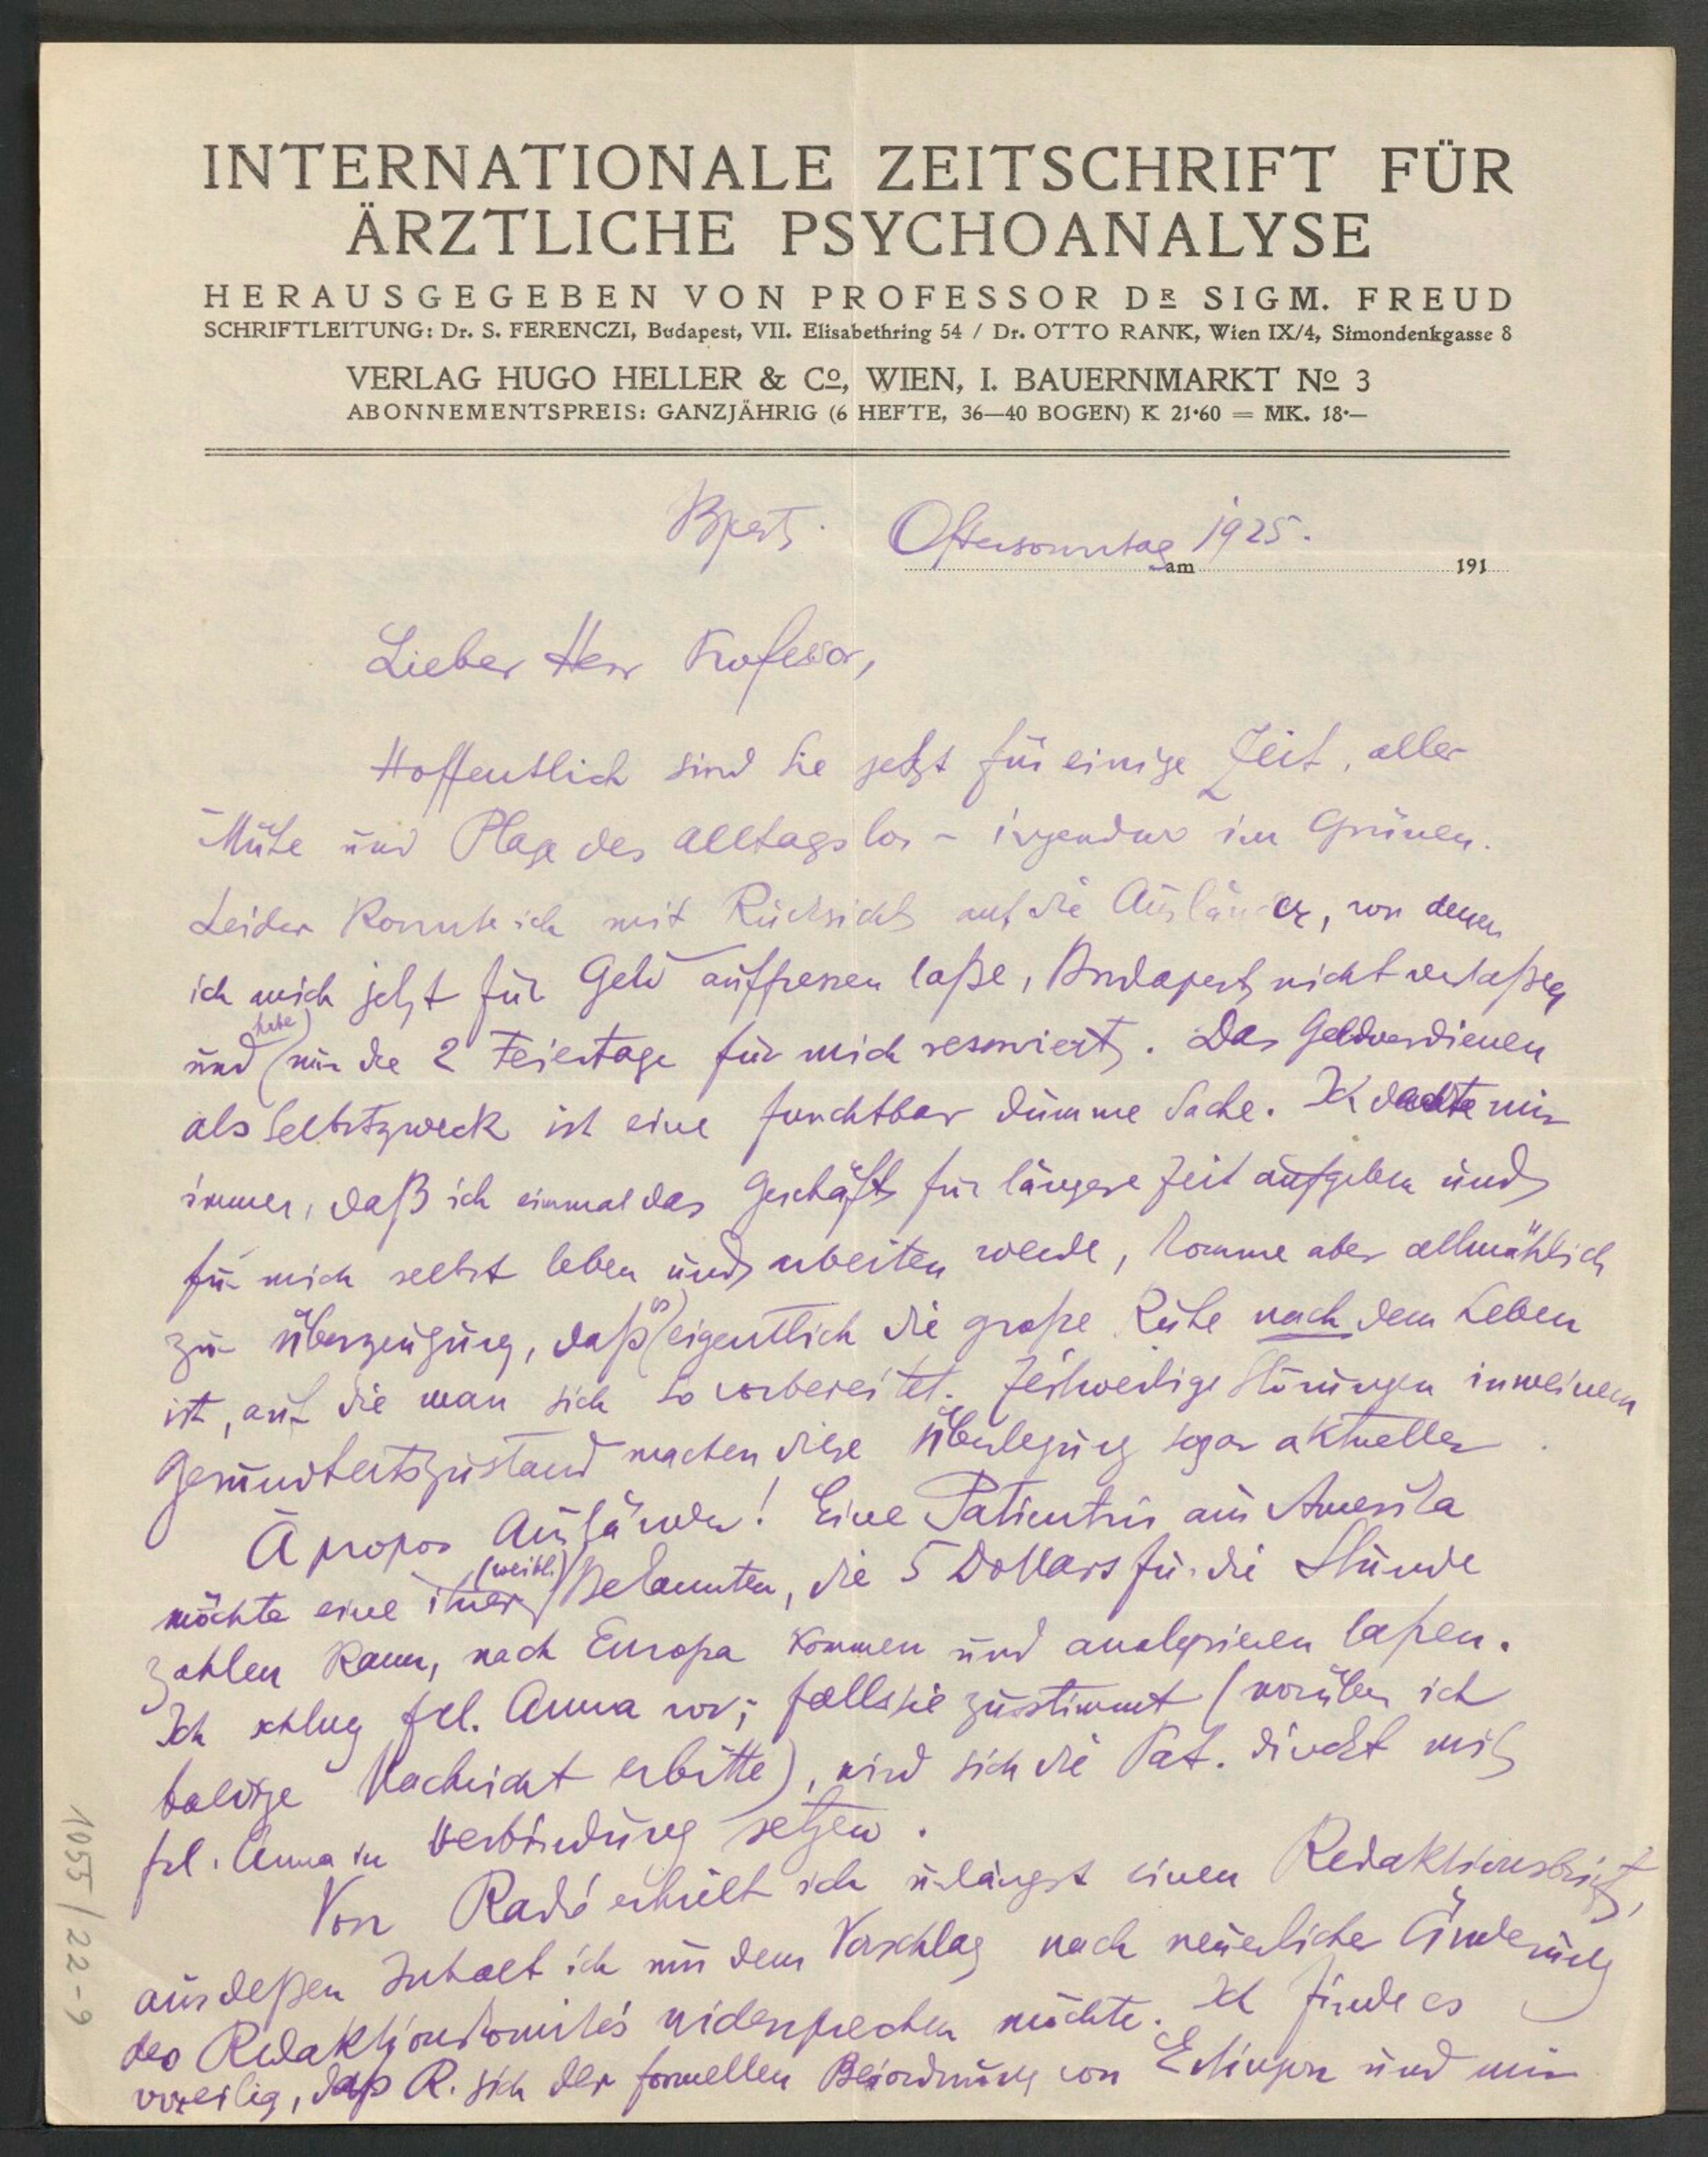 INTERNATIONALE ZEITSCHRIFT FÜR
ÄRZTLICHE PSYCHOANALYSE
HERAUSGEGEBEN VON PROFESSOR DR SIGM. FREUD
SCHRIFTLEITUNG: Dr. S. FERENCZI, Budapest, VII. Elisabethring 54 / Dr. OTTO RANK, Wien IX/4, Simondenkgasse 8
VERLAG HUGO HELLER & Co, WIEN, I. BAUERNMARKT No 3
ABONNEMENTSPREIS: GANZJÄHRIG (6 HEFTE, 36—40 BOGEN) K 21·60 = MK. 18·—
Bpest. Ostersonntag 1925.
am 191
Lieber Herr Professor,
Hoffentlich sind Sie jetzt für einige Zeit, aller
Mühe und Plage des Alltags los – irgendwo im Grünen.
Leider konnte ich mit Rücksicht auf die Ausländer, von denen
ich mich jetzt für Geld auffressen laße, Budapest nicht verlaßen
und (habe) nur die 2 Feiertage für mich reserviert. Das Geldverdienen
als Selbstzweck ist eine furchtbar dumme Sache. Ich dachte mir
immer, daß ich einmal das Geschäft für längere Zeit aufgeben und
für mich selbst leben und arbeiten werde, komme aber allmählich
zur Überzeugung, daß es eigentlich die große Ruhe nach dem Leben
ist, auf die man sich so vorbereitet. Zeitweilige Störungen in meinem
Gesundheitszustand machen diese Überlegung sogar aktueller.
À propos Ausländer! Eine Patientin aus Amerika
möchte eine ihrer (weibl.) Bekannten, die 5 Dollars für die Stunde
zahlen kann, nach Europa kommen und analysieren laßen.
Ich schlug Frl. Anna vor; falls sie zustimmt (worüber ich
baldige Nachricht erbitte), wird sich die Pat. direkt mit
Frl. Anna in Verbindung setzen.
Von Radó erhielt ich unlängst einen Redaktionsbrief,
aus deßen Inhalt ich nur dem Vorschlag nach neuerlicher Änderung
des Redaktionskomités widersprechen möchte. Ich finde es
voreilig, daß R. sich der formellen Beiordnung von Eitingon und mir
1055/22-9